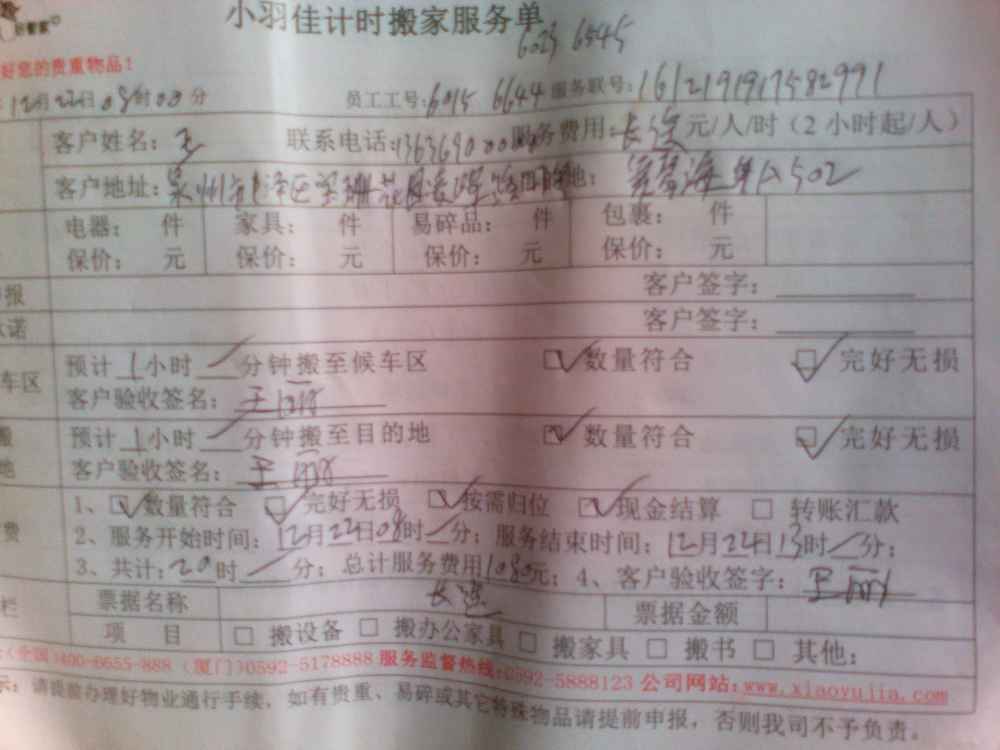 小羽佳计时搬家服务单
6025 6545
好您的贵重物品！
12月22日08时00分 员工工号：6015 6644 服务联号：1612191917582991
客户姓名：王 联系电话：服务费用：长途元/人/时（2小时起/人）
客户地址：泉州市 地：单A502
电器： 件 家具： 件 易碎品： 件 包裹： 件
保价： 元 保价： 元 保价： 元 保价： 元
报 客户签字：
诺 客户签字：
预计1小时/分钟搬至候车区 数量符合 完好无损
车区
客户验收签名：王丽
搬 预计1小时/分钟搬至目的地 数量符合 完好无损
地 客户验收签名：王丽
1、数量符合 完好无损 按需归位 现金结算 转账汇款
费 2、服务开始时间：12月22日08时/分；服务结束时间：12月22日13时/分；
3、共计：20时/分；总计服务费用1080元；4、客户验收签字：王丽
栏 票据名称 长途 票据金额
项 目 搬设备 搬办公家具 搬家具 搬书 其他：
(全国)400-6655-888（厦门)0592-5178888 服务监督热线：0592-5888123 公司网站：www.xiaoyujia.com
示：请提前办理好物业通行手续，如有贵重、易碎或其它特殊物品请提前申报，否则我司不予负责。